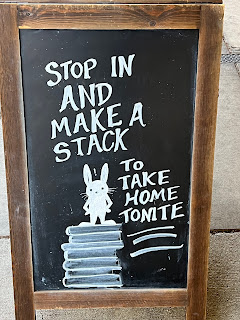 STOP IN
AND
MAKE A
STACK
TO
TAKE
HOME
TONITE